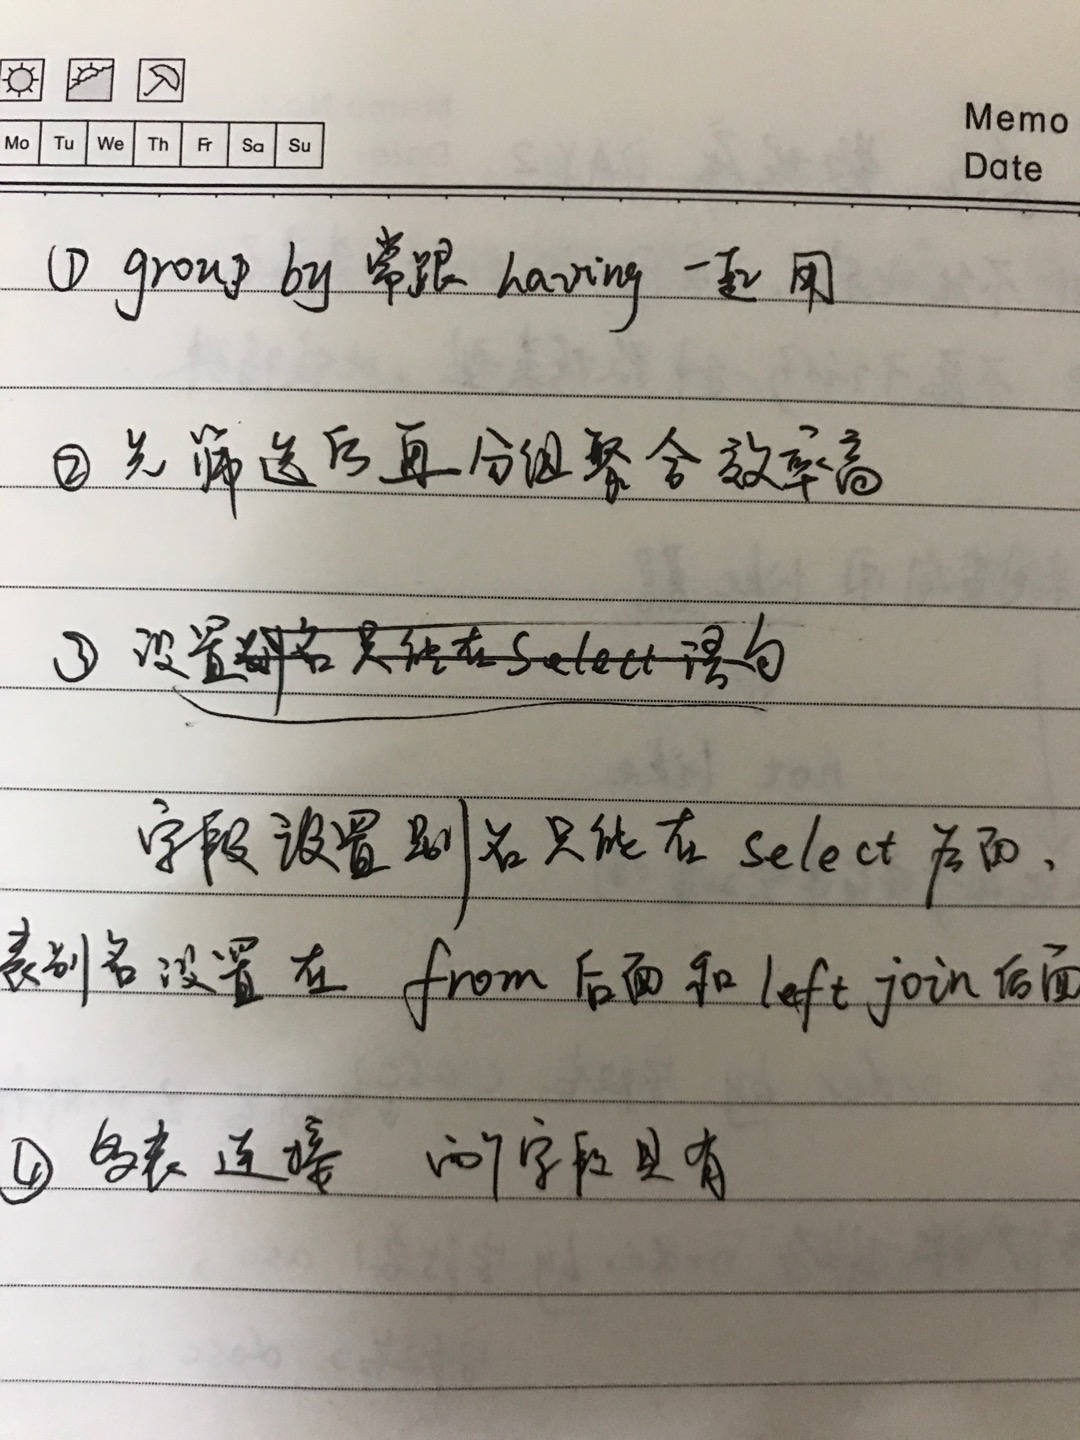 Mo Tu We Th Fr Sa Su
Memo
Date
① group by 常跟 having 一起用
② 先筛选后再分组聚合效率高
③ 设置别名只能在 Select 语句
字段设置别名只能在 select 后面、
表别名设置在 from 后面和 left join 后面
④ 多表连接 两个字段具有